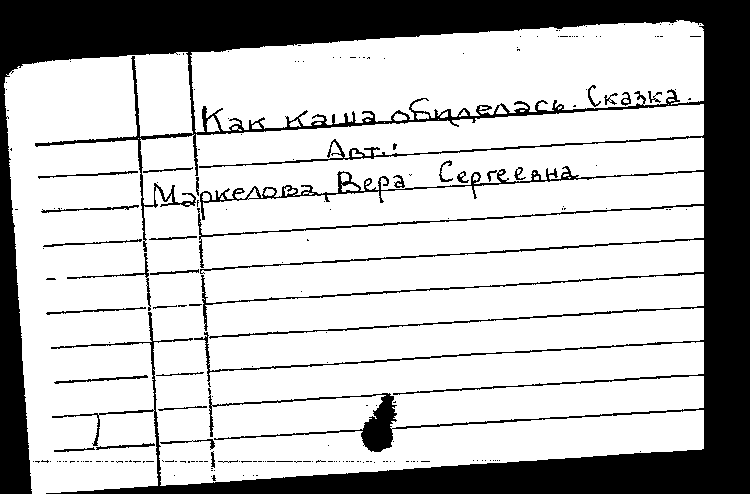 Как каша обиделась. Сказка.
Авт.:
Маркелова, Вера Сергеевна